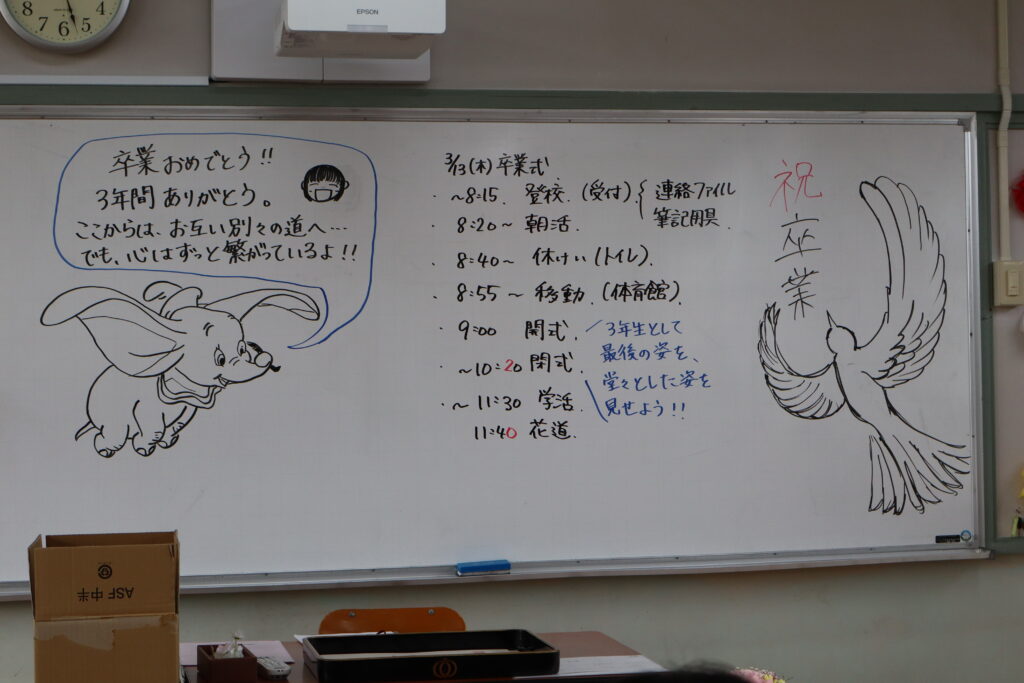 8 7 6 5
EPSON
卒業おめでとう!!
3年間ありがとう。
ここからは、お互い別々の道へ…
でも、心はずっと繋がっているよ!!
3/13(木)卒業式
・~8:15. 登校.(受付){連絡ファイル
筆記用具.
・8:20~ 朝活.
・8:40~ 休けい(トイレ).
・8:55~ 移動.(体育館).
・9:00 開式.
・~10:20 閉式.
3年生として
最後の姿を、
堂々とした姿を
見せよう!!
・~11:30 学活.
11:40 花道.
祝
卒
業
ASF 中半